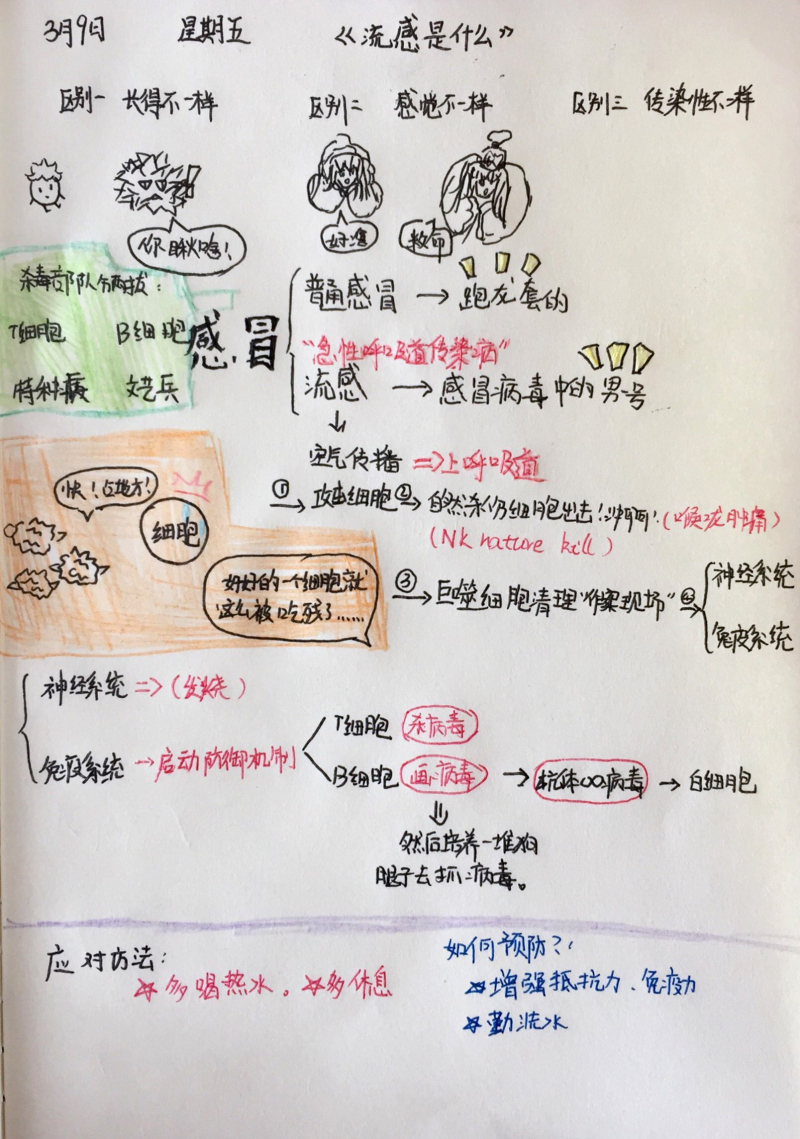 3月9日 星期五 《流感是什么》
区别一 长得不一样 区别二 感觉不一样 区别三 传染性不一样
你瞅啥!
好涩
救命
杀毒部队分两拨:
T细胞 B细胞
特种兵 文艺兵
感冒
普通感冒 → 跑龙套的
"急性呼吸道传染病"
流感 → 感冒病毒中的男一号
空气传播 => 上呼吸道
快!占地方!
细胞
① → 攻击细胞 ② → 自然杀伤细胞出去! (喉咙肿痛)
(NK nature kill)
好好的一个细胞就
这么被吃残了……
③ → 巨噬细胞清理"作案现场" ④ 神经系统
免疫系统
神经系统 => (发烧)
免疫系统 → 启动防御机制
T细胞 杀病毒
B细胞 画病毒 → 抗体 病毒 → 白细胞
然后培养一堆狗
腿子去抓病毒。
应对方法:
☆多喝热水。☆多休息
如何预防?:
☆增强抵抗力、免疫力
☆勤洗水